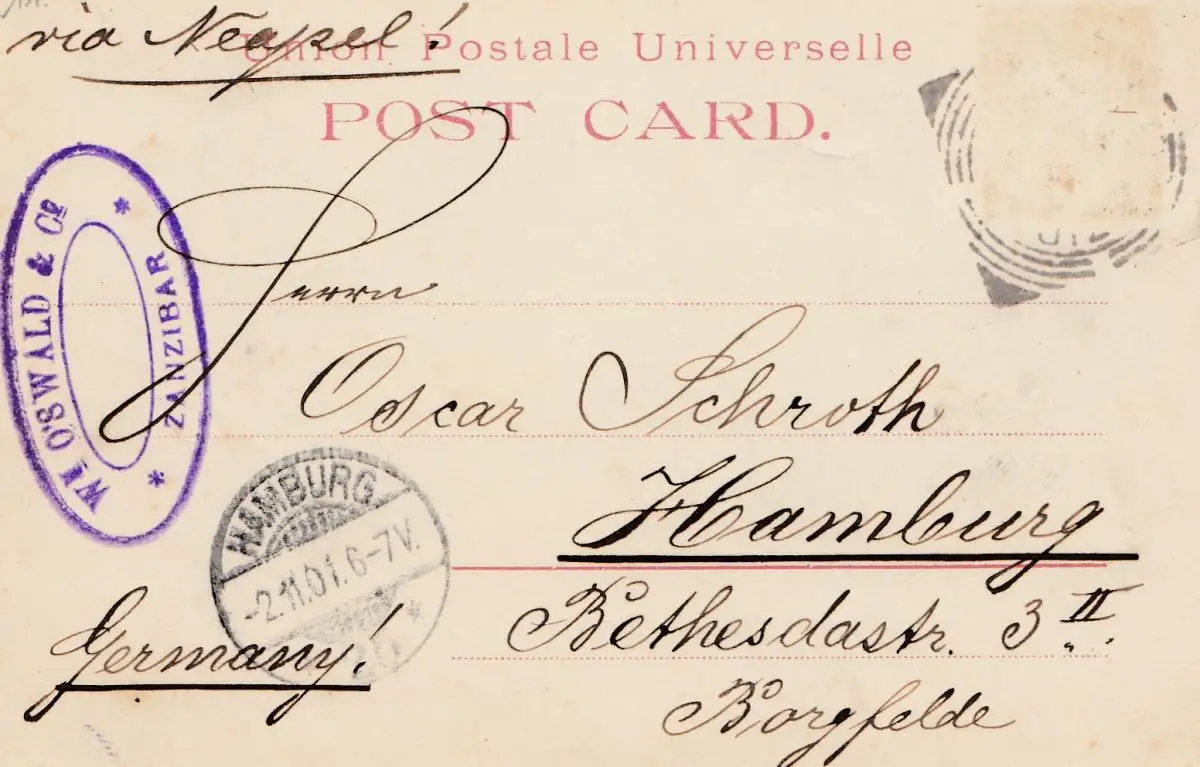 via Neapel!
Union Postale Universelle
POST CARD.
Wm OSWALD & Co
* ZANZIBAR *
Herrn
Oscar Schroth
Hamburg
HAMBURG
-2.11.01.6-7V.
Bethesdastr. 3 II
Germany!
Borgfelde